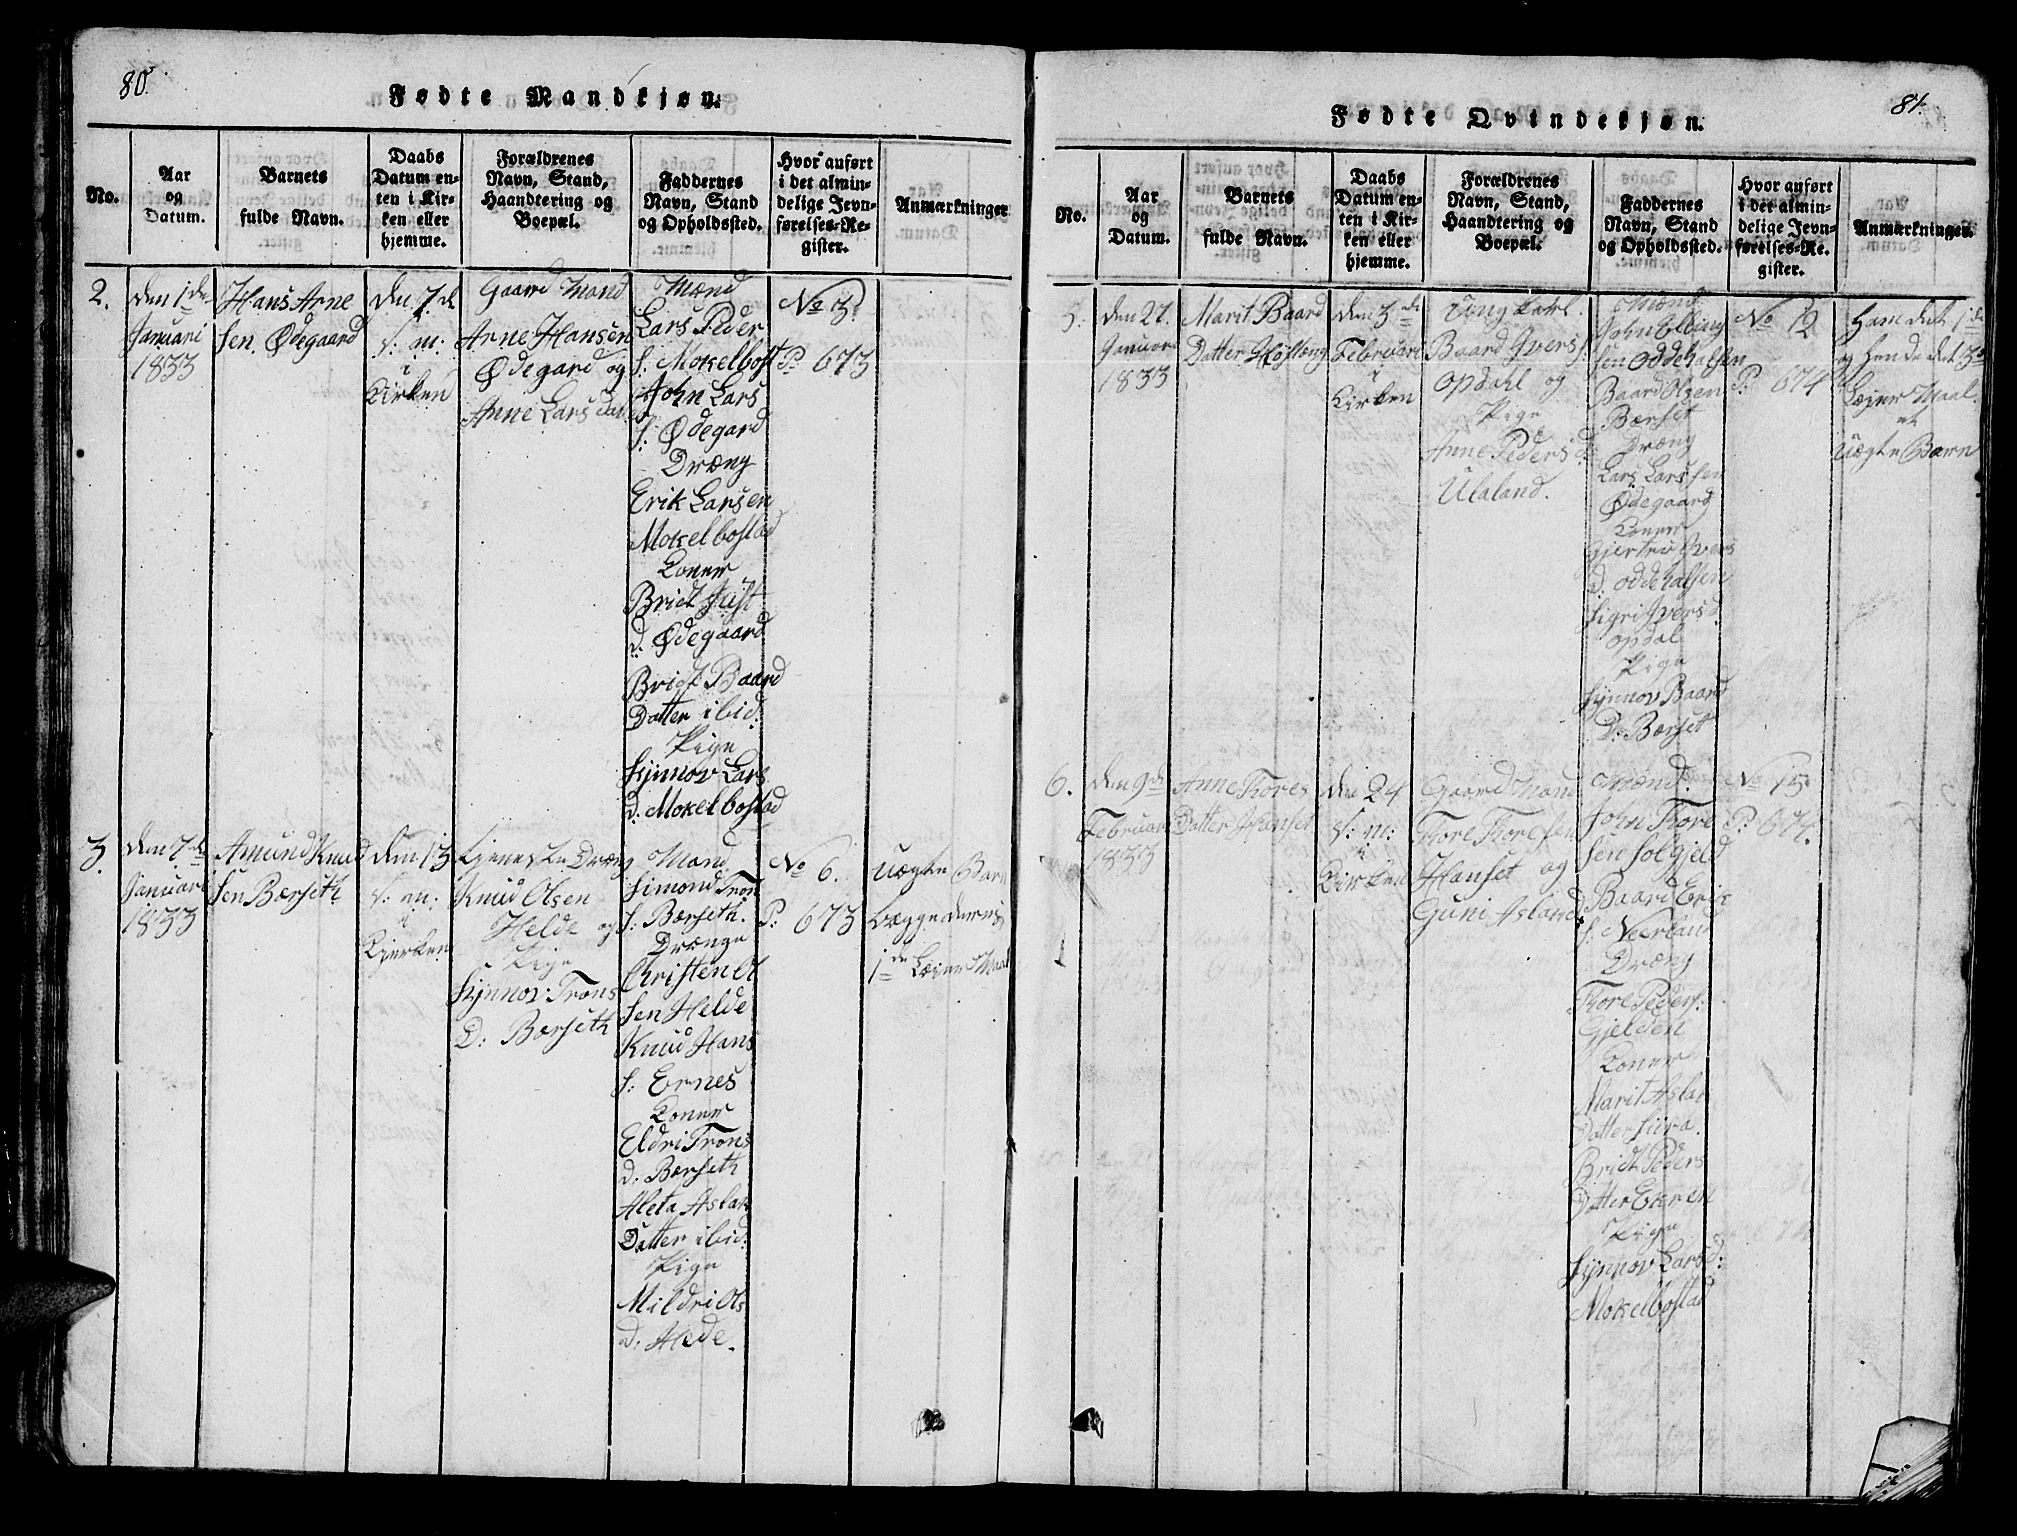 80.
Fødte Mandkjøn.
No.
Aar
og
Datum.
Barnets
fulde Navn.
Daabs
Datum en-
ten i Kir-
ken eller
hjemme.
Forældrenes
Navn, Stand,
Haandtering og
Boepæl.
Faddernes
Navn, Stand
og Opholdssted.
Hvor anført
i det almin-
delige Jevn-
førelses-Re-
gister.
Anmærkninger
2.
den 1de
Januari
1833
Hans Arne
sen Ødegaard
den 7.de
s: m:
i
Kirken
Gaard Mand
Arne Hansen
Ødegard og
Anne Lars dat
Mænd
Lars Peder
s. Mokelbost
John Lars
s: Ødegard
Dræng
Erik Larsen
Mokelbostad
Koner
Bridt Just
d: Ødegaard
Bridt Baard
Datter ibid:
Pige
Synnov Lars
d: Mokelbostad
No 3.
P. 673
3.
den 7.de
Januari
1833
Amund Knud
sen Bærseth
den 13
s: m:
i
Kjerken
tjeneste Dræng
Knud Olsen
Helde og
Pige
Synnov: Trons
D: Bærseth
Mand
Simond Tron
s: Bærseth.
Drænge
Christen Ol
sen Helde
Knud Hans
s: Ernes
Koner
Eldri Trons
d: Bærseth
Aleta Aslak
Datter ibid:
Pige
Mildri Ols
d: Helde.
No 6.
P: 673
uægte Barn
begge deres
1de Leier Maal
84.
Fødte Qvindekjøn.
No.
Aar
og
Datum.
Barnets
fulde Navn.
Daabs
Datum en-
ten i Kir-
ken eller
hjemme.
Forældrenes
Navn, Stand,
Haandtering og
Boepæl.
Faddernes
Navn, Stand
og Opholdssted.
Hvor anført
i det almin-
delige Jevn-
førelses-Re-
gister.
Anmærkninger.
5.
den 27.
Januari
1833
Marit Baard
Datter
den 3de
Februari
i
Kirken
Ung karl.
Baard Ivers
Opdahl og
Pige
Anne Peders d.
Ulaland.
Mænd
John Elling
sen Oddehalsen
Baard Olsen
Bærset
Dræng
Lars Lars sen
Ødegaard
Koner
Gjertru Ivers
d: oddehalsen
Sigri Ivers d
opdal
Pige
Synnov Baard
D: Bærset
No 12
P: 674
Ham det 1de
og hende det 3de
Leier Maal.
et
uægte Barn
6.
den 9de
Februari
1833
Anne Thores
Datter Hanset
den 24
s: m:
i
Kirken
Gaard Mand
Thore Thoresen
Hanset og
Guni Asland
Mænd.
John Thore
sen Solgjeld
Baard Erik
s: Neerland
Dræng
Thore Peders:
Gjelden
Koner
Marit Aslak
Datter Sura.
Bridt Peders
Datter Ekren
Pige
Synnov Lars d:
Mokelbostad
No 15
P: 674.